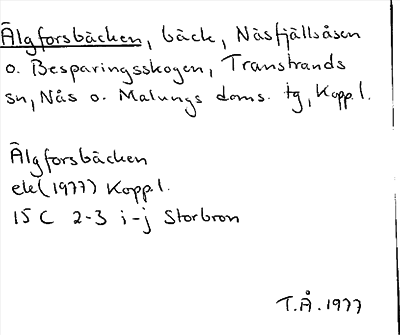 Älgforsbäcken, bäck, Näsfjällsåsen
o. Besparingsskogen, Transtrands
sn, Nås o. Malungs doms. tg, Kopp.l.
Älgforsbäcken
ek (1977) Kopp.l.
15 C 2-3 i-j Storbron
T.Å. 1977